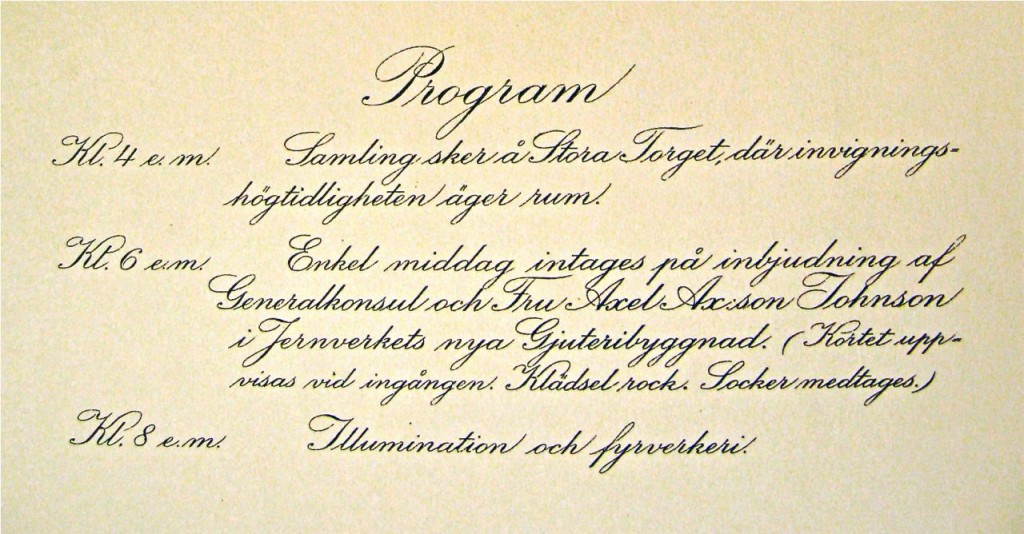 Program
Kl. 4 e. m. Samling sker å Stora Torget, där invignings-
högtidligheten äger rum.
Kl. 6 e. m. Enkel middag intages på inbjudning af
Generalkonsul och Fru Axel Ax:son Johnson
i Jernverkets nya Gjuteribyggnad. (Kortet upp-
visas vid ingången. Klädsel rock. Socker medtages.)
Kl. 8 e. m. Illumination och fyrverkeri.